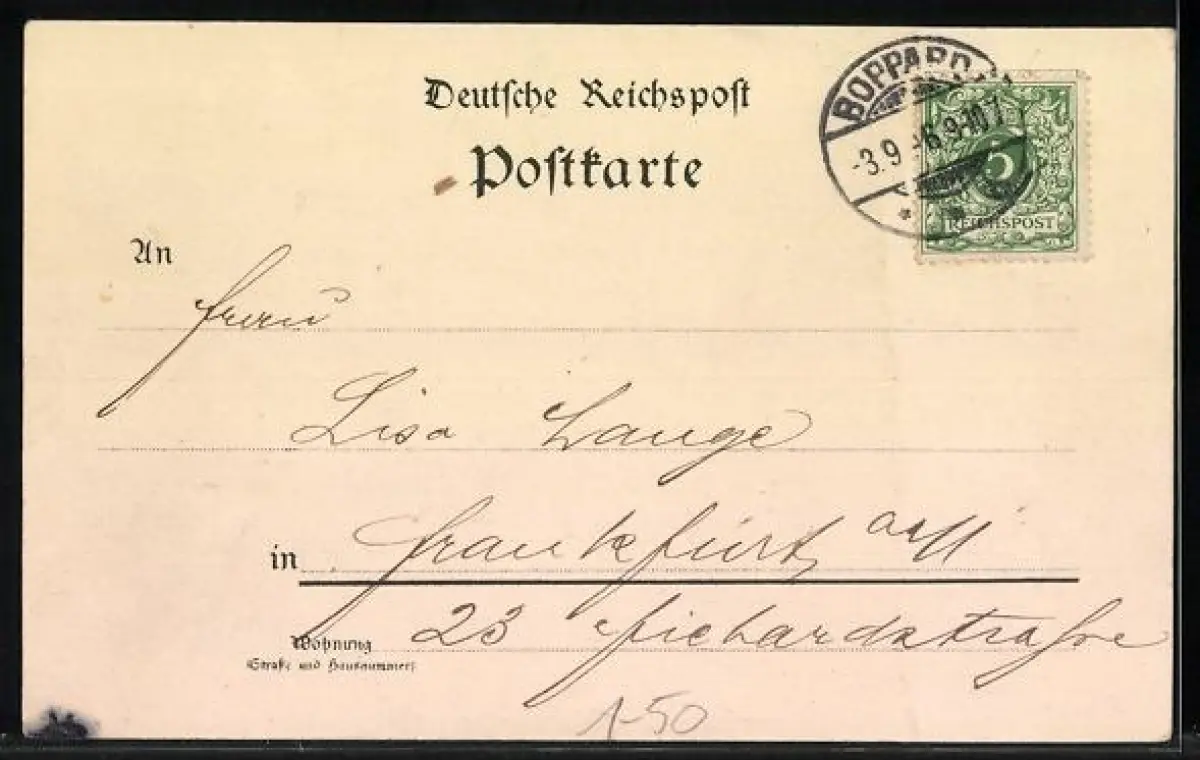 Deutsche Reichspost
Postkarte
BOPPARD
-3.9 96.9-10V
5
REICHSPOST
An
Frau
Lisa Lange
in Frankfurt a/M
23
Wohnung
(Straße und Hausnummer)
1-50